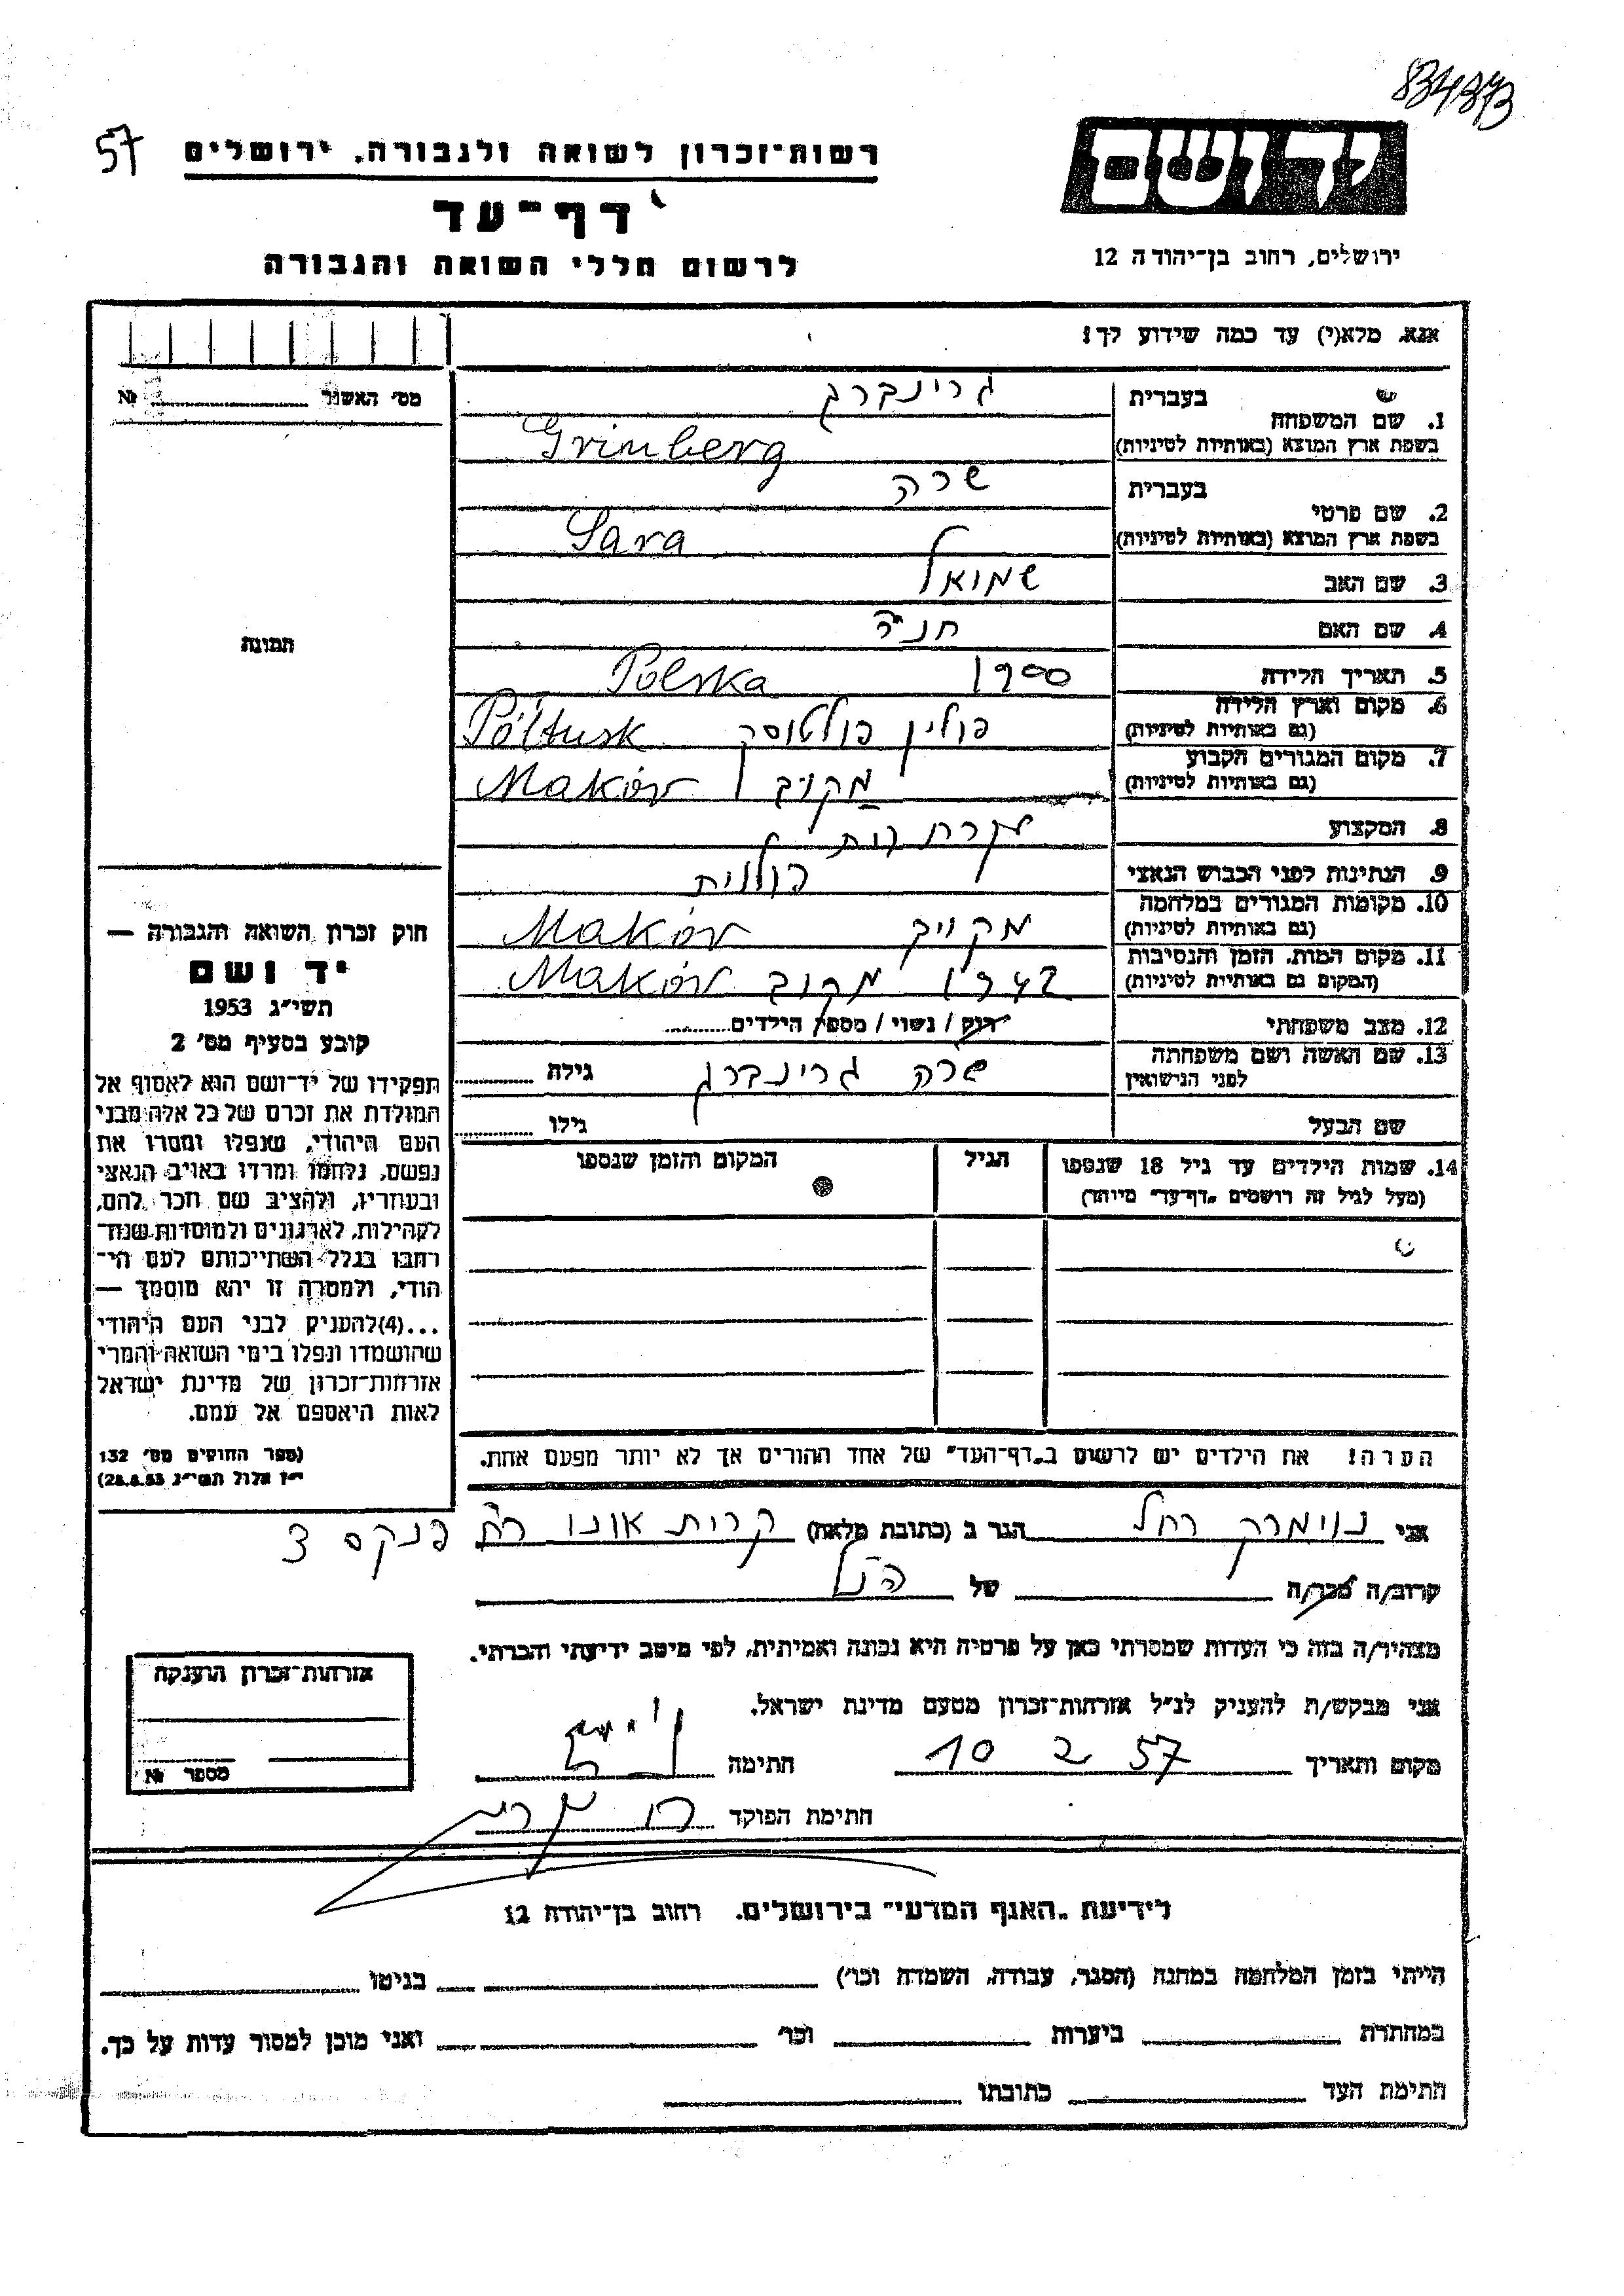 834373
57
רשות-זכרון לשואה ולגבורה, ירושלים
יד ושם
דף-עד
ירושלים, רחוב בן-יהודה 12
לרשום חללי השואה והגבורה
אנא, מלא(י) עד כמה שידוע לך!
מס' האשור № 
בעברית גרינברג
1. שם המשפחה
בשפת ארץ המוצא (באותיות לטיניות) Grinberg
בעברית שרה
2. שם פרטי
בשפת ארץ המוצא (באותיות לטיניות) Sara
3. שם האב שמואל
4. שם האם חנה
תמונה
5. תאריך הלידה 1900 Polska
6. מקום וארץ הלידה
(גם באותיות לטיניות) פולין פולטוסק Póltusk
7. מקום המגורים הקבוע
(גם באותיות לטיניות) מקוב Maków
8. המקצוע
9. הנתינות לפני הכבוש הנאצי פולנית
10. מקומות המגורים במלחמה
(גם באותיות לטיניות) מקויב Maków
11. מקום המות, הזמן והנסיבות
(המקום גם באותיות לטיניות) 1942 מקוב Maków
12. מצב משפחתי רוק / נשוי / מספר הילדים
13. שם האשה ושם משפחתה
לפני הנישואין שרה גרינברג גילה
שם הבעל גילו
14. שמות הילדים עד גיל 18 שנספו
(מעל לגיל זה רושמים „דף-עד" מיוחד)
הגיל
המקום והזמן שנספו
חוק זכרון השואה והגבורה —
יד ושם
תשי"ג 1953
קובע בסעיף מס' 2
תפקידו של יד-ושם הוא לאסוף אל
המולדת את זכרם של כל אלה מבני
העם היהודי, שנפלו ומסרו את
נפשם, נלחמו ומרדו באויב הנאצי
ובעוזריו, ולהציב שם וזכר להם,
לקהילות, לארגונים ולמוסדות שנח-
רבו בגלל השתייכותם לעם הי-
הודי, ולמטרה זו יהא מוסמך —
...(4)להעניק לבני העם היהודי
שהושמדו ונפלו בימי השואה והמרי
אזרחות-זכרון של מדינת ישראל
לאות היאספם אל עמם.
(ספר החוקים מס' 132
י"ז אלול תשי"ג 28.8.53)
הערה! את הילדים יש לרשום ב„דף-העד" של אחד ההורים אך לא יותר מפעם אחת.
אני נוימרק רחל הגר ב (כתובת מלאה) קרית אונו רח' פנקס 3
קרוב/ה מכר/ה של הנ"ל
מצהיר/ה בזה כי העדות שמסרתי כאן על פרטיה היא נכונה ואמיתית, לפי מיטב ידיעתי והכרתי.
אני מבקש/ת להעניק לנ"ל אזרחות-זכרון מטעם מדינת ישראל.
מקום ותאריך 10 2 57 חתימה
חתימת הפוקד
אזרחות-זכרון הוענקה
מספר №
לידיעת „האגף המדעי" בירושלים. רחוב בן-יהודה 12
הייתי בזמן המלחמה במחנה (הסגר, עבודה, השמדה וכו') בגיטו
במחתרת ביערות וכו' ואני מוכן למסור עדות על כך.
חתימת העד כתובתו